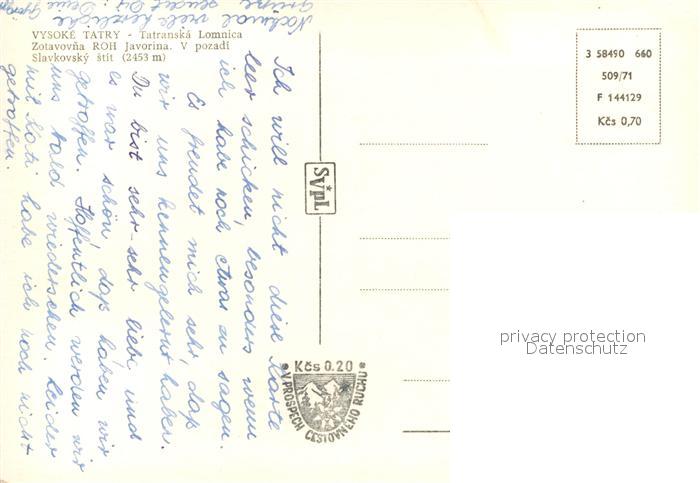 VYSOKÉ TATRY - Tatranská Lomnica
Zotavovňa ROH Javorina. V pozadí
Slavkovský štít (2453 m)
Ich will nicht diese Karte
leer schicken, besonders wenn
ich habe noch etwas zu sagen.
Es freudet mich sehr, daß
wir uns kennengelernt haben.
Du bist sehr-sehr liebe und
es war schön, daß haben wir
getroffen. Hoffentlich werden wir
uns bald wiedersehen. Leider
mit Kati habe ich noch nicht
getroffen.
Nochmal viele herzliche
Grüße sendet Dir: Deine
SVPL
3 58490 660
509/71
F 144129
Kčs 0,70
Kčs 0.20
V PROSPECH CESTOVNÉHO RUCHU
privacy protection
Datenschutz